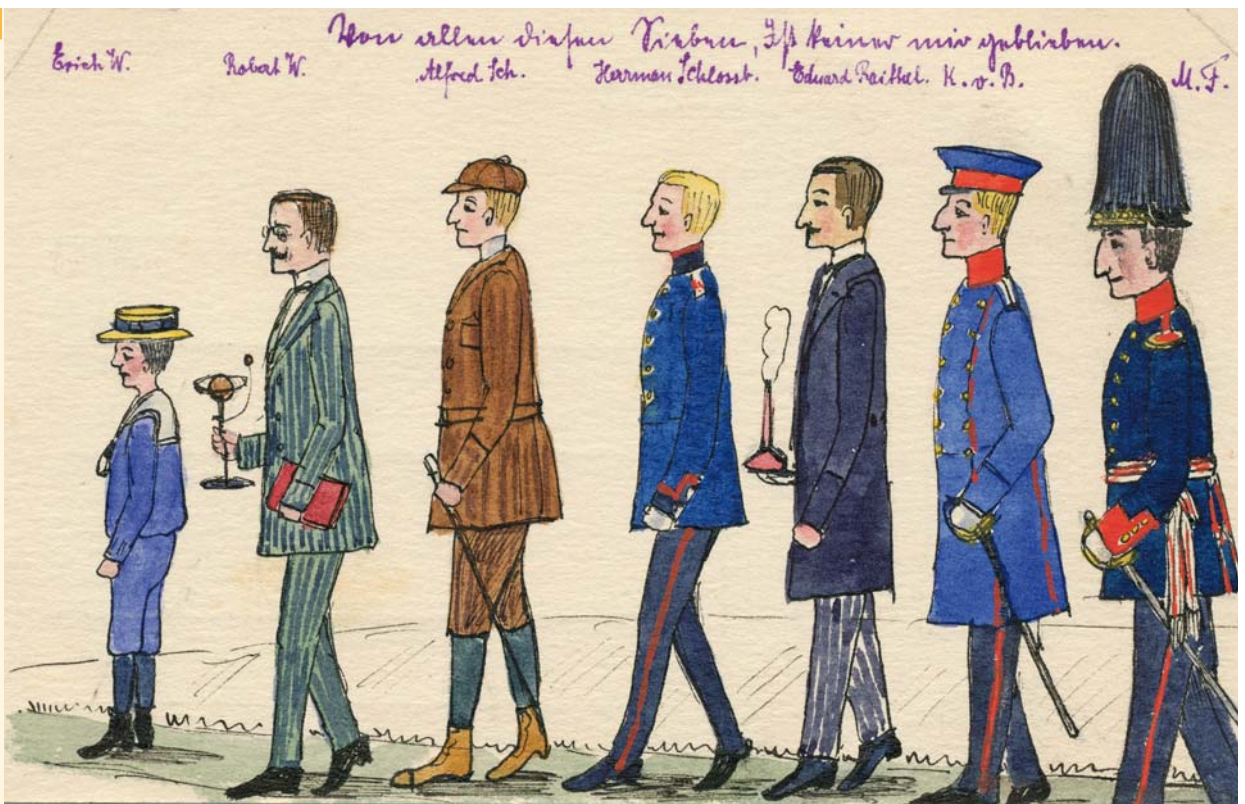 Von allen diesen Sieben, Ist keiner mir geblieben.
Erich W. Robert W. Alfred Sch. Herrman Schlosst. Eduard Raithel. K. v. B. M. F.